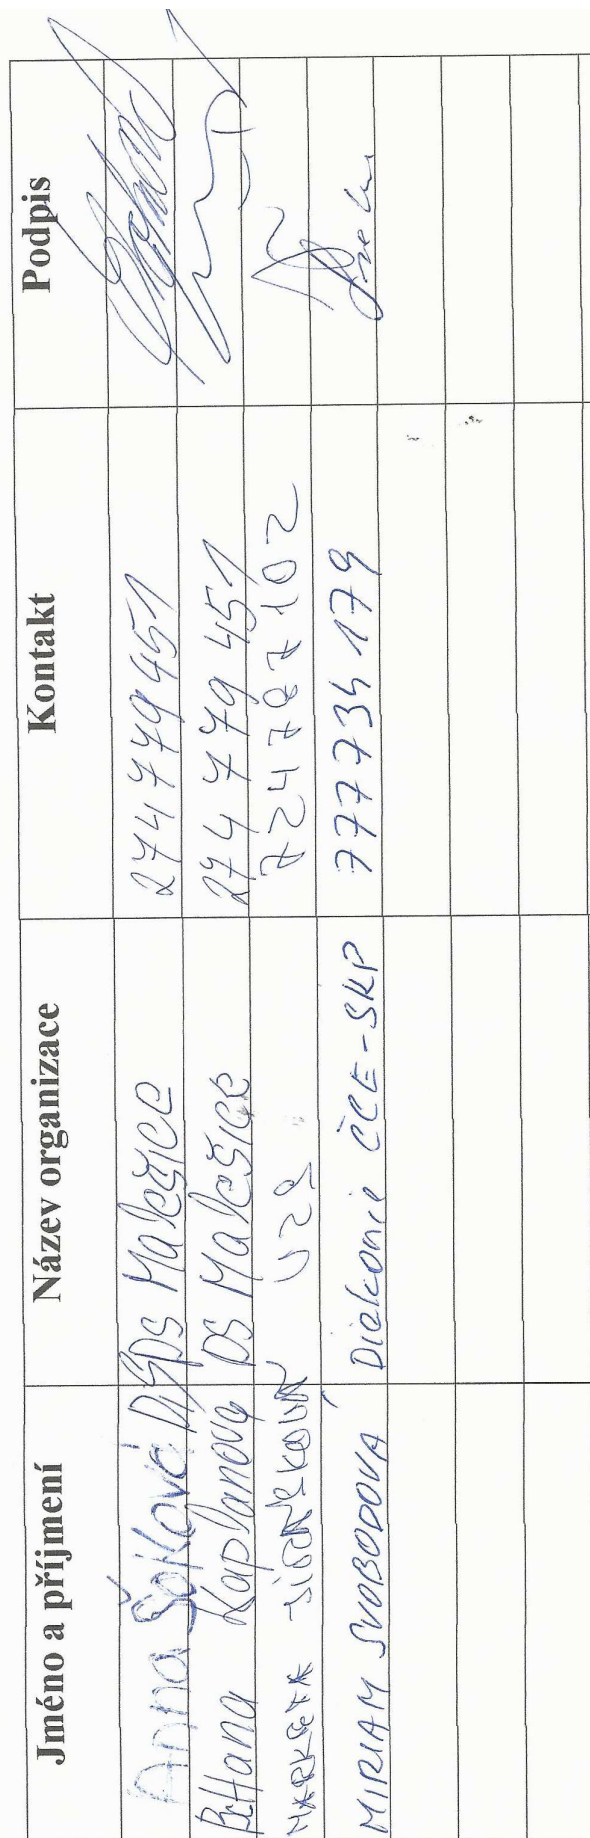 Jméno a příjmení Název organizace Kontakt Podpis
Anna Šojková DiS DS Malešice 274779451
Bc Hana Kaplanová DS Malešice 274 779 451
MARKÉTA 724787102
MIRIAM SVOBODOVÁ Diakonie ČCE-SKP 777734179